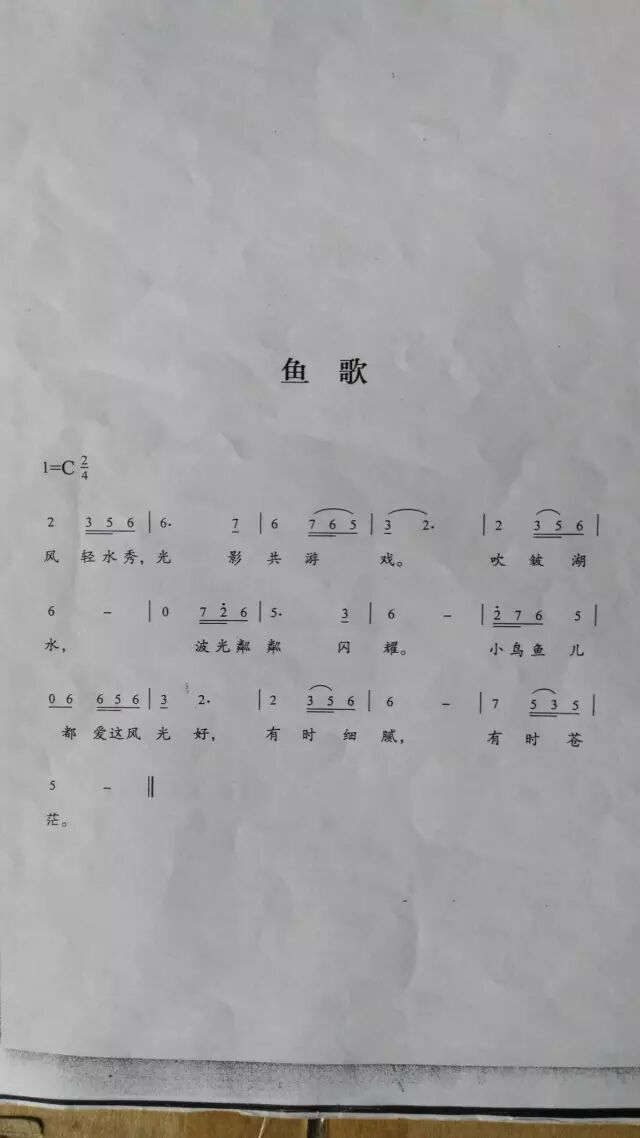 鱼 歌
1=C 2/4
2 3 5 6 | 6. 7 | 6 7 6 5 | 3 2. | 2 3 5 6 |
风 轻 水 秀, 光 影 共 游 戏。 吹 皱 湖
6 - | 0 7 2̇ 6 | 5. 3 | 6 - | 2̇ 7 6 5 |
水, 波 光 粼 粼 闪 耀。 小 鸟 鱼 儿
0 6 6 5 6 | 3 2. | 2 3 5 6 | 6 - | 7 5 3 5 |
都 爱 这 风 光 好, 有 时 细 腻, 有 时 苍
5 - ‖
茫。